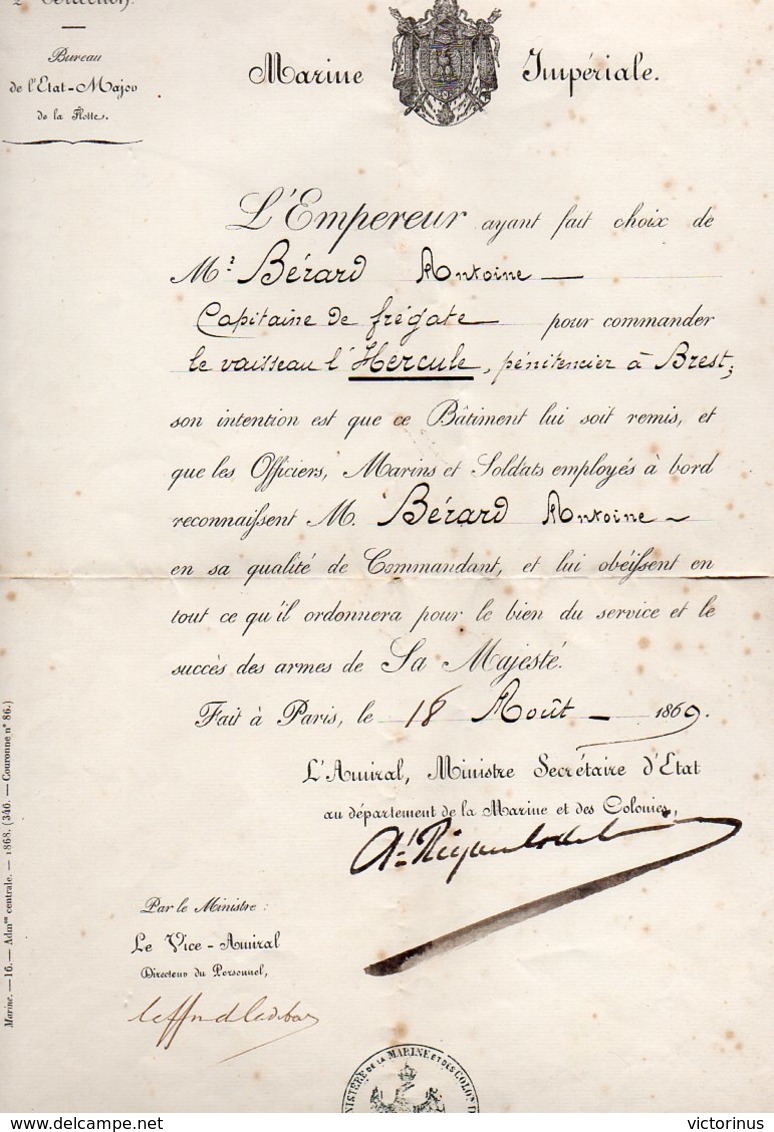 Bureau
de l'Etat-Major
de la Flotte.
Marine Impériale.
L'Empereur ayant fait choix de
Mr. Bérard Antoine —
Capitaine de frégate pour commander
le vaisseau l'Hercule, pénitencier à Brest;
son intention est que ce Bâtiment lui soit remis, et
que les Officiers, Marins et Soldats employés à bord
reconnaissent M. Bérard Antoine
en sa qualité de Commandant, et lui obéissent en
tout ce qu'il ordonnera pour le bien du service et le
succès des armes de Sa Majesté.
Fait à Paris, le 18 Août — 1869.
L'Amiral, Ministre Secrétaire d'Etat
au département de la Marine et des Colonies,
Par le Ministre :
Le Vice-Amiral
Directeur du Personnel,
Marine. — 16. — Admon centrale. — 1868. (346. — Couronne n° 86.)
MINISTÈRE DE LA MARINE ET DES COLONIES
victorinus